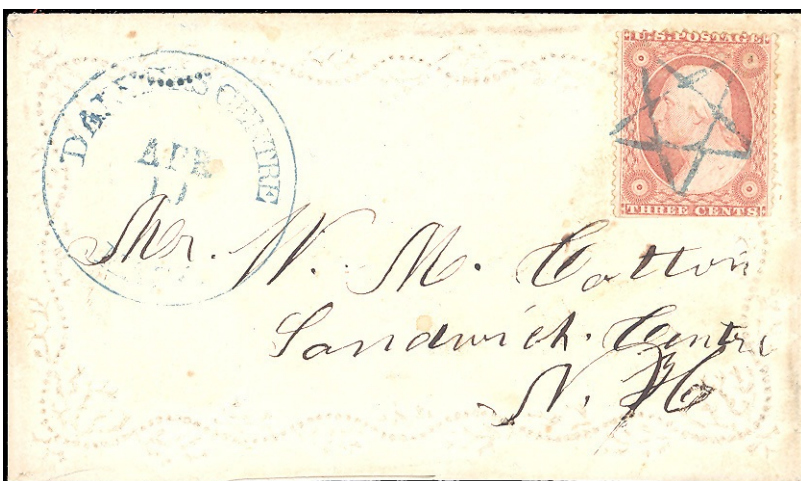 DANVERS CENTRE
APR
U.S. POSTAGE
THREE CENTS
Mr. W. M. Cotton
Sandwich. Centre
N. H